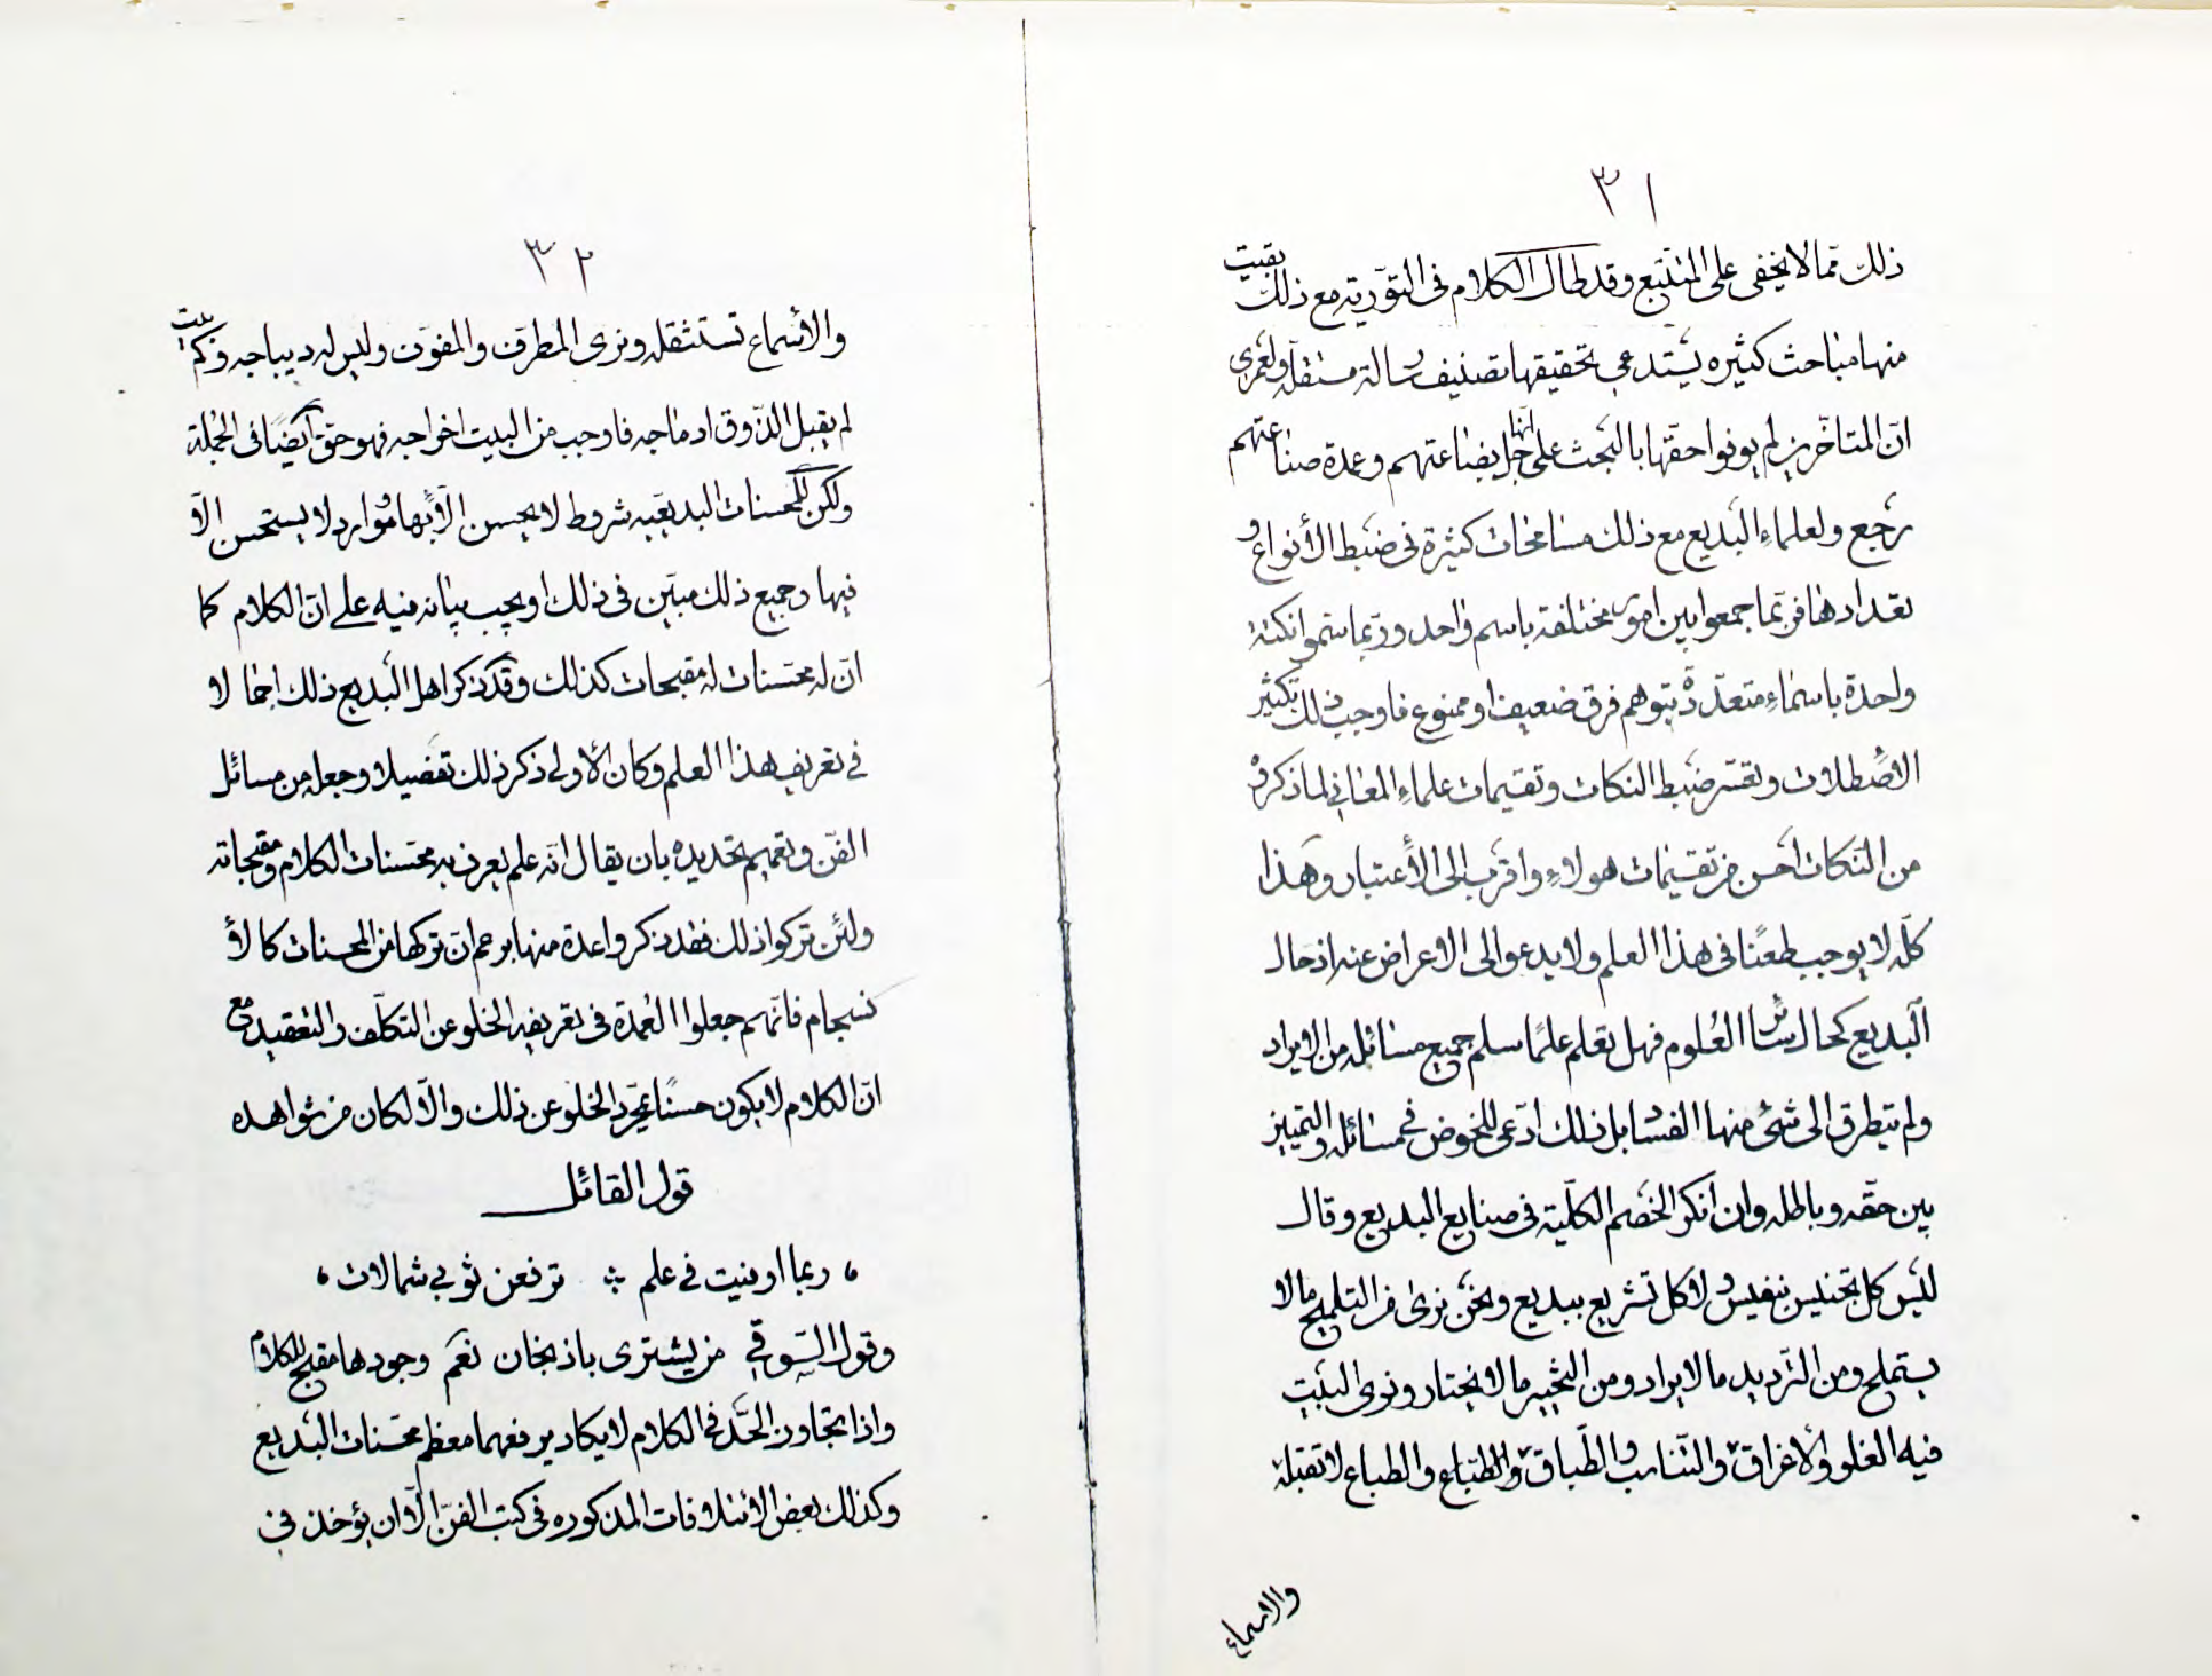 ٣١
ذلك ممّا لا يخفى على المتتبّع وقد طال الكلام فى التوّرية مع ذلك بقيت
منها مباحث كثيره يستدعى تحقيقها تصنيف رسالة مستقلّة ولعمرى
انّ المتاخّرين لم يوفوا حقّها بالبحث على انّها جلّ بضاعتهم وعمدة صناعتهم
رجع ولعلماءِ البَديع مع ذلك مسامحات كثيرة فى ضَبط الأنواع و
تعدادها فربّما جمعوا بين امور مختلفة باسم واحد وربّما سمّوا نكتة
واحدة باسماءِ متعدّدة بتوهم فرق ضعيف او ممنوع فاوجب ذلك تكثير
الاصطلاحات وتعسّر ضبط النكات وتقسيمات علماءِ المعانى لما ذكروه
من النكات احسن من تقسيمات هولاءِ واقرب الى الأعتبار وهذا
كلّه لا يوجب طعنًا فى هذا العلم ولا يدعو الى الاعراض عنه اذ حال
البديع كحال سائر العُلوم فهل تعلم علمًا سلم جميع مسائله من الايراد
ولم يتطرق الى شئ منها الفساد بل ذلك ادّعى للخوض فى مسائله والتمييز
بين حقّه وباطله وان انكر الخصم الكلّية فى صنايع البديع وقال
ليس كل تجنيس بنفيس ولا كل تشريع ببديع ونحن نرى من التلميح ما لا
يستملح ومن التّرديد ما لا يراد ومن التخيير ما لا يختار ونرى البيت
فيه الغلو والأغراق والتّناسب والطّباق والطّباع والطباع لا تقبله
والاسماع
٣٢
والأسماع تستثقله ونرى المطرّف والمفوّف وليس له ديباجه وكم بيت
لم يقبل الذّوق ادماجه فاوجب من البيت اخراجه فهو حقّ ايضًا فى الجملة
ولكن للمحسنات البديعيه شروط لا يحسن الّا بها وموارد لا يستحسن الّا
فيها وجميع ذلك مبيّن فى ذلك او يجب بيانه فيه على انّ الكلام كما
انّ له محسّنات له مقبحات كذلك وقد ذكر اهل البديع ذلك اجمالا
فى تعريف هذا العلم وكان الأولى ذكر ذلك تفصيلا وجعله من مسائل
الفنّ وتعميم تحديده بان يقال انّه علم يعرف به محسّنات الكلام ومقبحاته
ولئن تركوا ذلك فقد ذكروا عدة منها بزعم انّ تركها من المحسنات كالأ
نسجام فانّهم جعلوا العُمدة فى تعريفه الخلو عن التكلّف والتعقيد مع
انّ الكلام لا يكون حسنًا بمجرّد الخلو عن ذلك والّا لكان من شواهده
قول القائل
ربما اوفيت فى علم ترفعن ثوبى شمالات
وقول السّوقى من يشترى باذنجان نعم وجودها مقبح للكلام
واذا تجاوز الحدّ فى الكلام لا يكاد يرفعها معظم محسّنات البَديع
وكذلك بعض الائتلافات المذكوره فى كتب الفنّ الّا ان يؤخذ فى